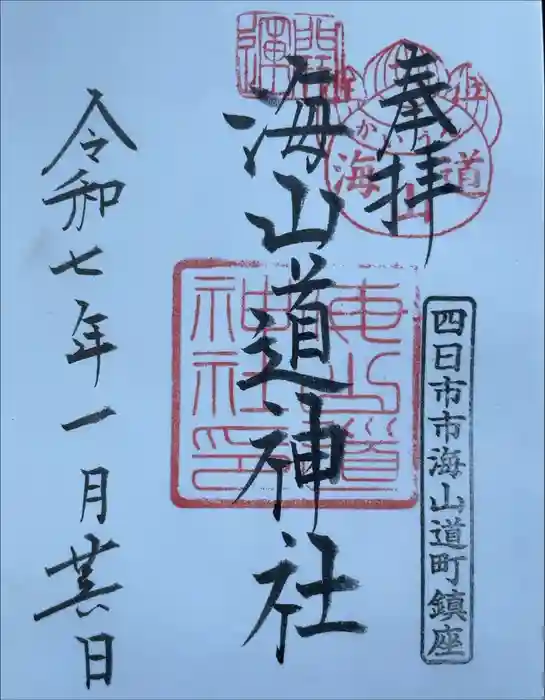 奉拝
海山道
開運
四日市市海山道町鎮座
海山道神社
海山道
神社印
令和七年一月
日